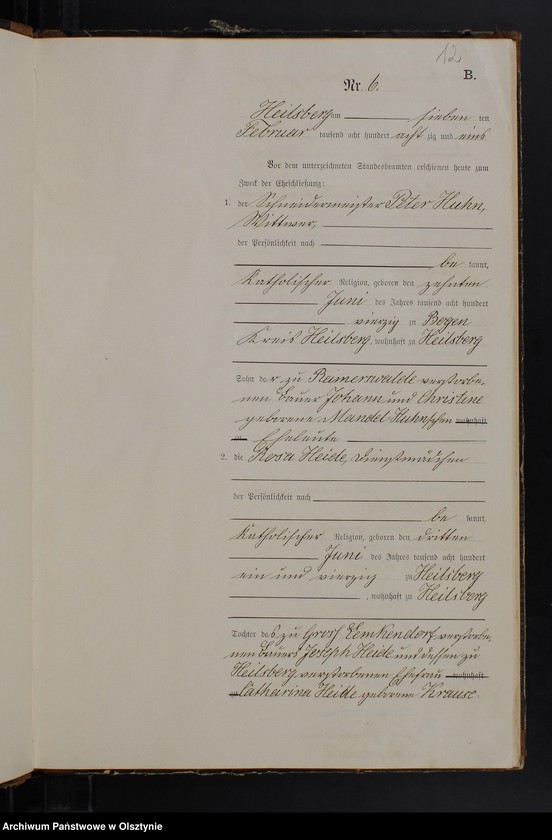 12
B.
Nr. 6.
Heilsberg am sieben ten
Februar tausend acht hundert acht zig und eins
Vor dem unterzeichneten Standesbeamten erschienen heute zum
Zweck der Eheschließung:
1. der Schneidermeister Peter Huhn,
Wittwer,
der Persönlichkeit nach
be kannt,
katholischer Religion, geboren den zehnten
Juni des Jahres tausend acht hundert
vierzig zu Bogen
Kreis Heilsberg, wohnhaft zu Heilsberg
Sohn der zu Reimerswalde verstorbe-
nen Bauer Johann und Christine
geborene Mandel-Huhnschen wohnhaft
zu Eheleute
2. die Rosa Heide, Dienstmädchen
der Persönlichkeit nach
be kannt,
katholischer Religion, geboren den dritten
Juni des Jahres tausend acht hundert
ein und vierzig zu Heilsberg
, wohnhaft zu Heilsberg
Tochter des zu Gross Lemkendorf verstorbe-
nen Bauers Joseph Heide und dessen zu
Heilsberg verstorbenen Ehefrau wohnhaft
zu Catharina Heide geborene Krause
Archiwum Państwowe w Olsztynie